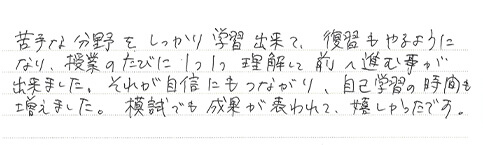 苦手な分野をしっかり学習出来て、復習もやるように
なり、授業のたびに1つ1つ理解して前へ進む事が
出来ました。それが自信にもつながり、自己学習の時間も
増えました。模試でも成果が表われて、嬉しかったです。